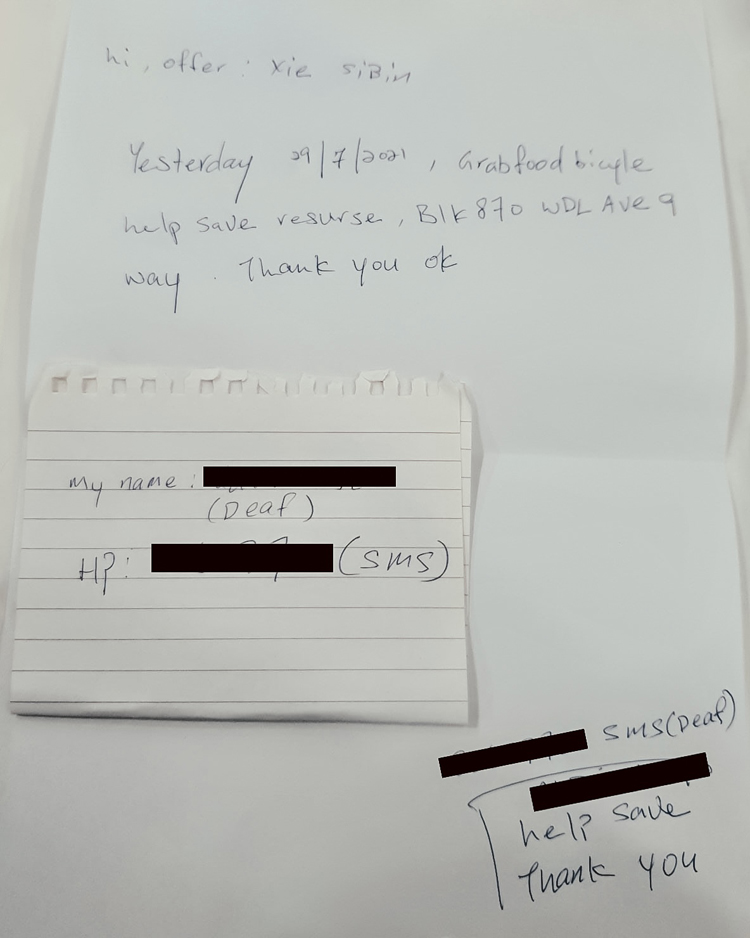 hi, offer : Xie SiBin
Yesterday 29/7/2021, Grabfood bicyle
help save resurse, Blk 870 WDL Ave 9
way. Thank you ok
My name :
(Deaf)
HP: (SMS)
SMS (Deaf)
help save
Thank you